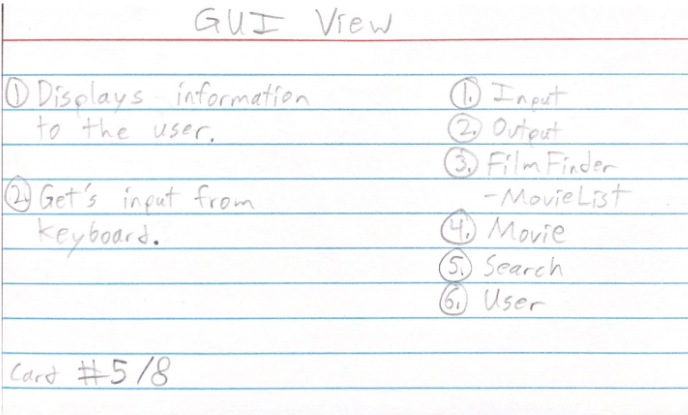 GUI View
① Displays information
to the user.
② Get's input from
keyboard.
① Input
② Output
③ FilmFinder
-MovieList
④ Movie
⑤ Search
⑥ User
Card #5/8